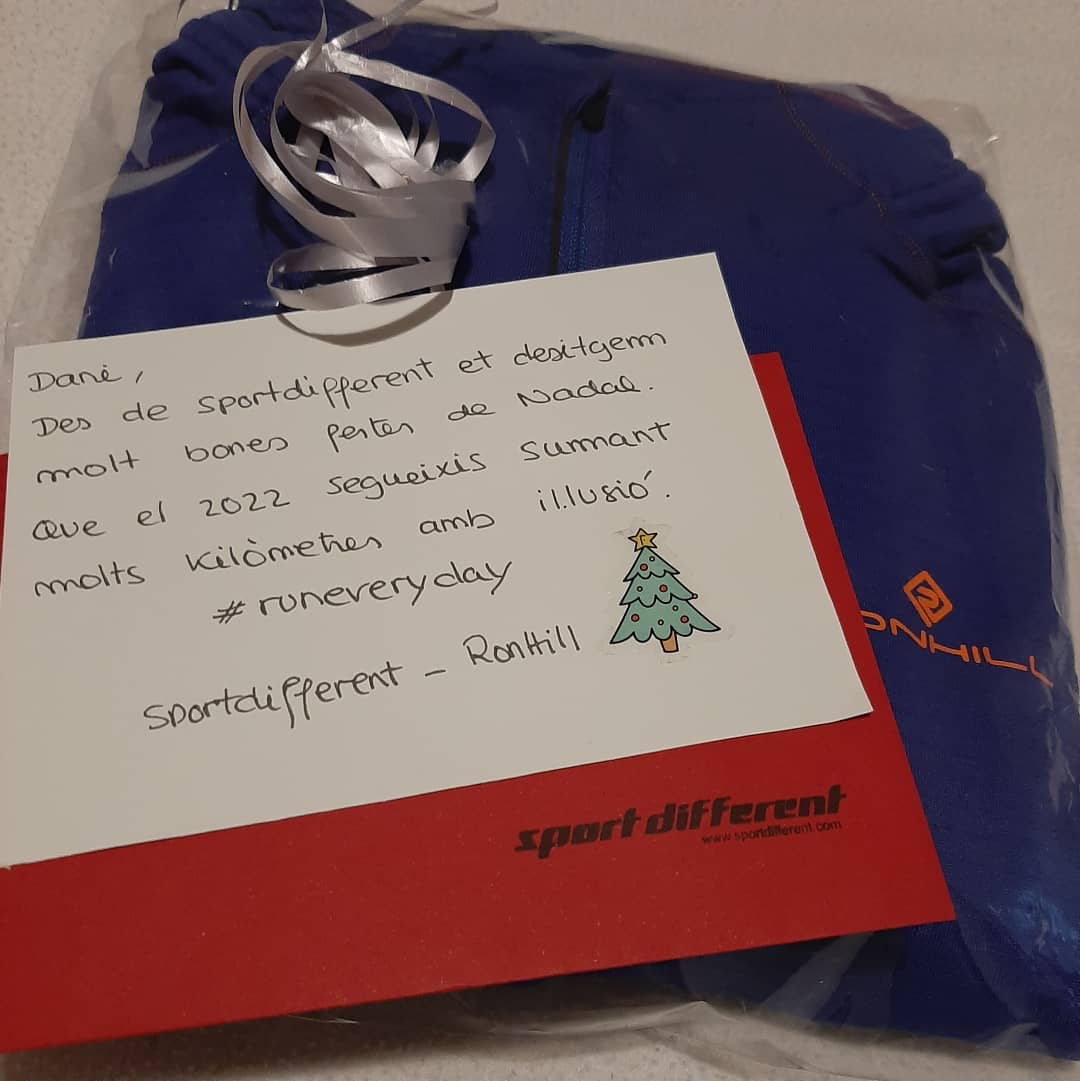 Dani,
Des de sportdifferent et desitgem
molt bones festes de Nadal.
Que el 2022 segueixis sumant
molts kilòmetres amb il.lusió.
#runeveryday
sportdifferent - RonHill
ONHILL
sport different
www.sportdifferent.com